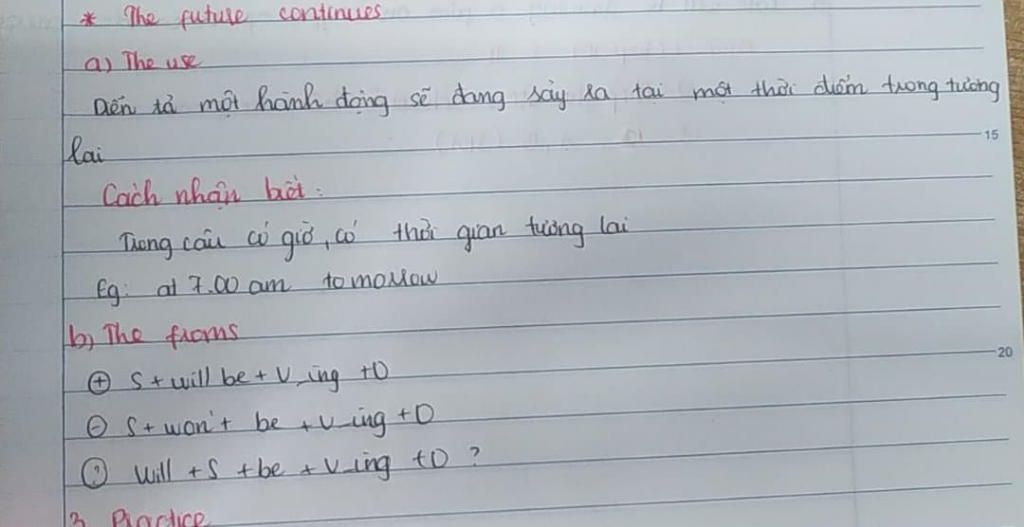 * The future continues
a) The use
Diễn tả một hành động sẽ đang sảy ra tại một thời điểm trong tương
lai
Cách nhận biết:
Trong câu có giờ, có thời gian tương lai
Eg: at 7.00 am tomorrow
b) The froms
+ S + will be + V_ing + O
- S + won't be + V-ing + O
? Will + S + be + V-ing + O ?
3 Practice
15
20